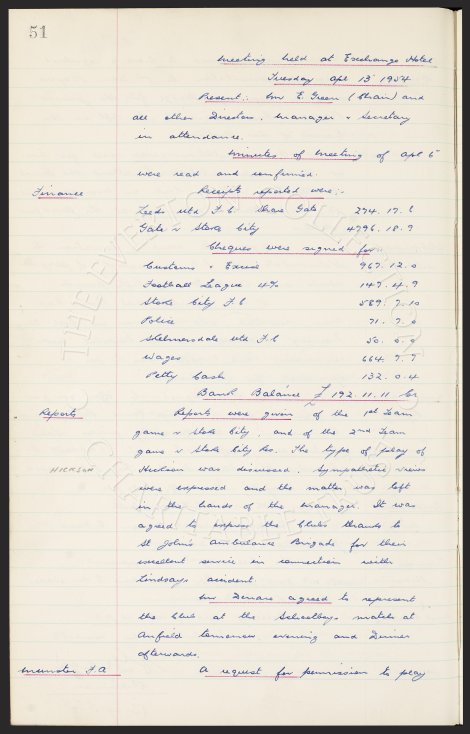 51
Meeting held at Exchange Hotel
Tuesday Apl 13 1954
Present:- Mr E. Green (Chair) and
all other Directors. Manager & Secretary
in attendance.
Minutes of Meeting of Apl 6
were read and confirmed.
Finance Receipts reported were:-
Leeds Utd F.C. Share Gate 274. 17. 6
Gate v Stoke City 4796. 18. 9
Cheques were signed for
Customs & Excise 967. 12. 0
Football League 4% 147. 4. 9
Stoke City F.C 589. 7. 10
Police 71. 7. 0
Skelmersdale Utd F.C 50. 0. 0
Wages 664. 7. 7
Petty Cash 132. 0. 4
Bank Balance £ 192. 11. 11 Cr
Reports Reports were given of the 1st Team
game v Stoke City, and of the 2nd Team
game v Stoke City Res. The type of play of
HICKSON Hickson was discussed. Sympathetic views
were expressed and the matter was left
in the hands of the Manager. It was
agreed to express the Clubs thanks to
St John's Ambulance Brigade for their
excellent service in connection with
Lindsays accident.
Mr Searle agreed to represent
the Club at the Schoolboys match at
Anfield tomorrow evening and Dinner
afterwards.
Munster F.A A request for permission to play